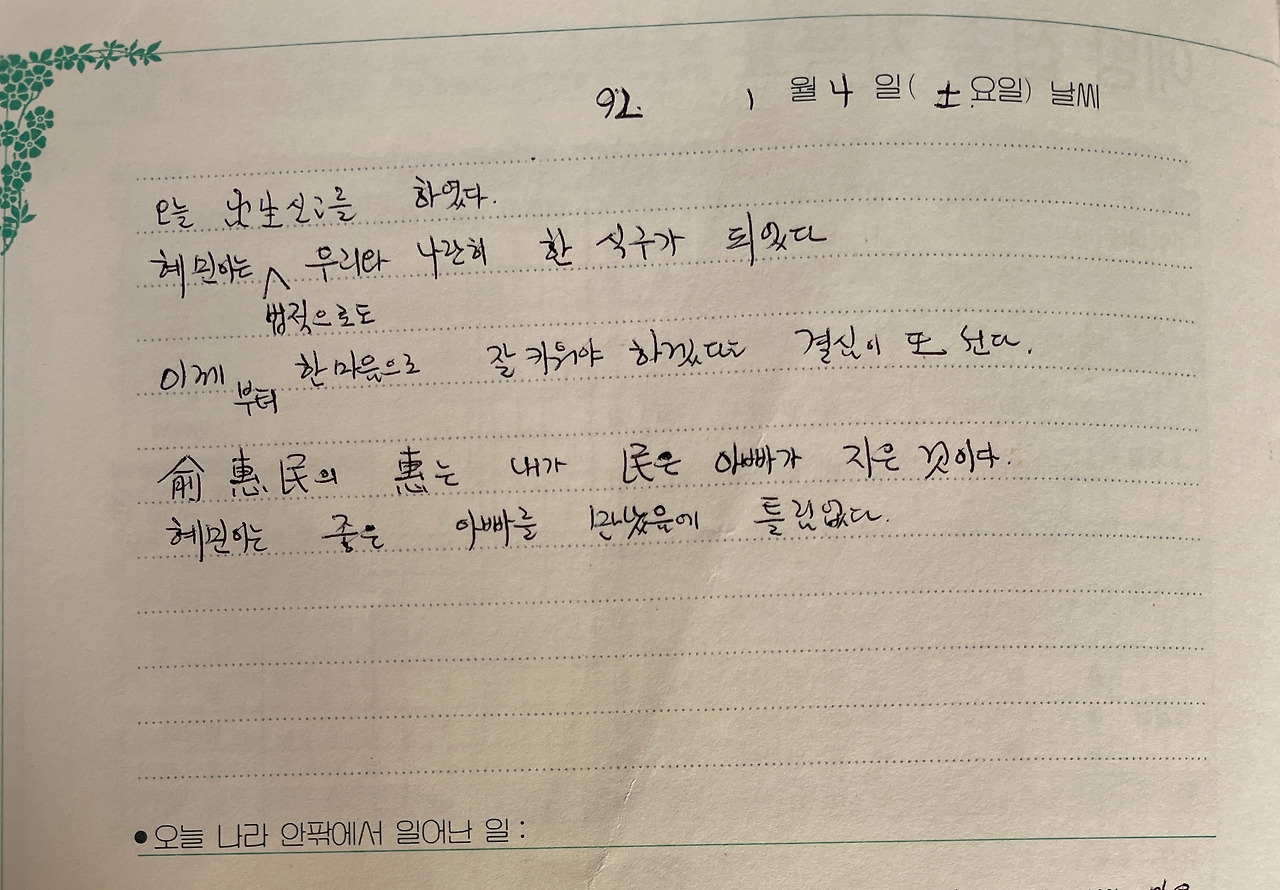 92. 1 월 4 일( 土 요일) 날씨
오늘 出生신고를 하였다.
혜민이는 법적으로도 우리와 나란히 한 식구가 되었다
이제부터 한마음으로 잘 키워야 하겠다는 결심이 또 선다.
兪惠民의 惠는 내가 民은 아빠가 지은 것이다.
혜민이는 좋은 아빠를 만났음에 틀림없다.
●오늘 나라 안팎에서 일어난 일 :